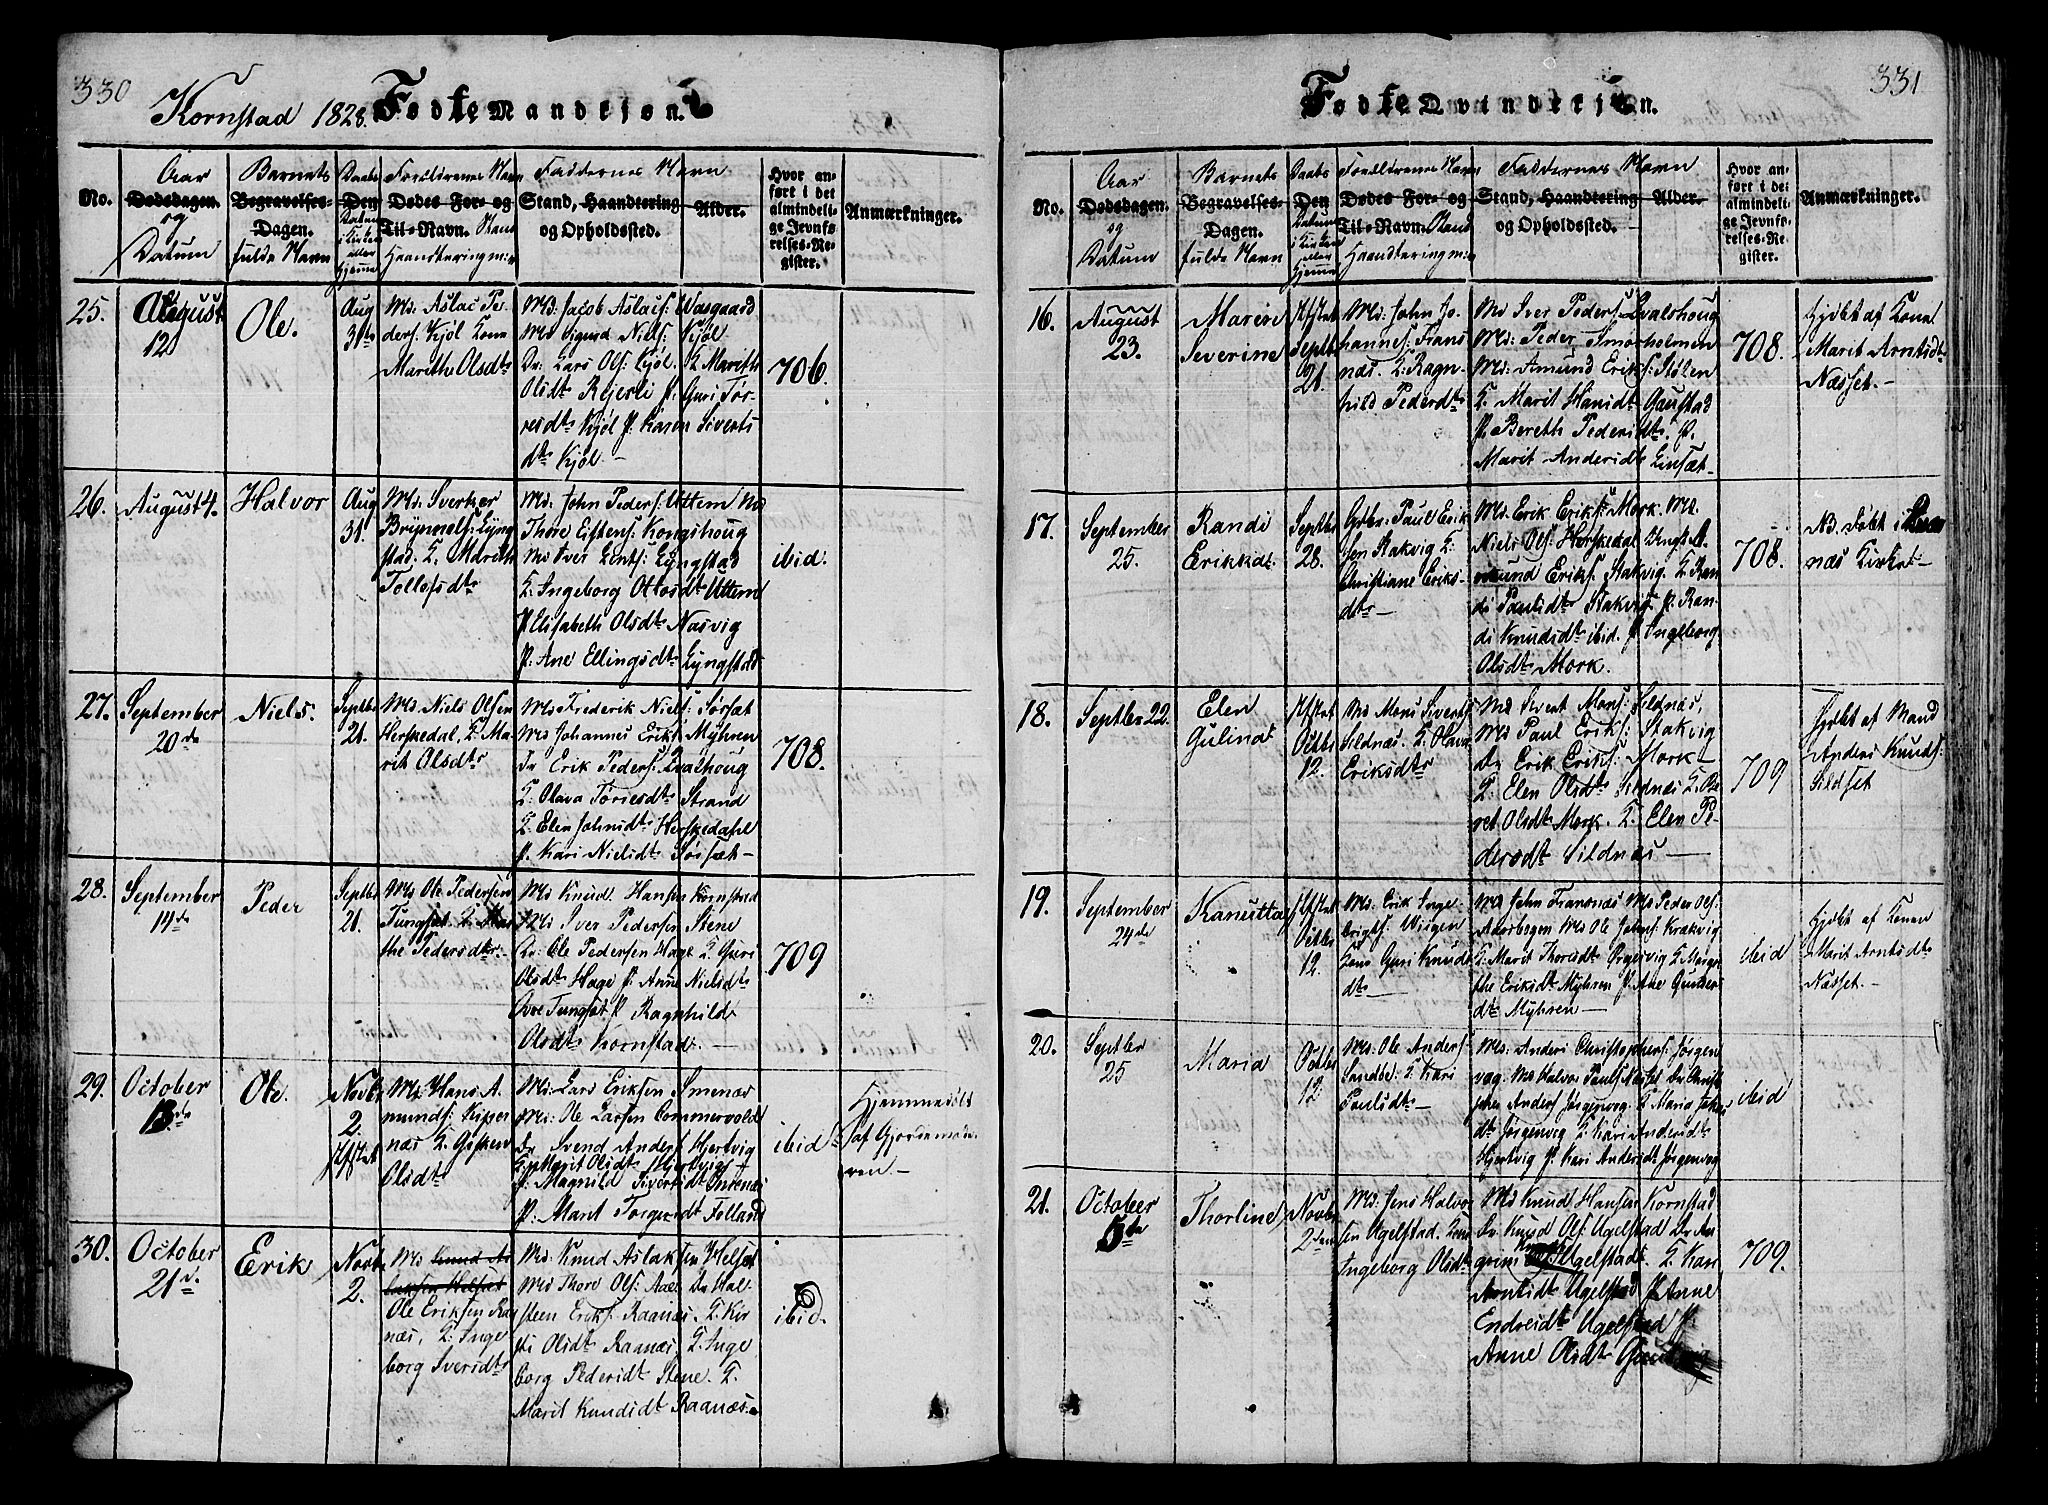 330
Kornstad 1828. Fødte Mandkjøn.
No.
Aar
Dødsdagen.
og
Datum
Barnets
Begravelses-
Dagen.
fulde Navn
Daabs
Den
Datum
i Kirken
eller
Hjemme
Forældrenes Navn
Dødes For- og
Til-Navn. Stand
Haandtering m:v:
Faddernes Navn
Stand, Haandtering
og Opholdssted.
Alder.
Hvor an-
ført i det
almindeli-
ge Jevnfø-
relses-Re-
gister.
Anmærkninger.
25.
August
12
Ole.
Aug
31te
Md: Aslac Pe-
ders: Kjøl Kone
Mareth Olsdtr
Md: Jacob Aslacs: Vasgaard
Md Sigurd Niels: Kjøl
Dr: Lars Ols: Kjøl. K Mareth
Olsdt Rejerli P. Guri Tør-
resdtr Kjøl P: Karen Siverts
dtr Kjøl. —
706.
26.
August 4.
Halvor
Aug
31.
Md: Sverker
Brynnels: Lyng
stad. K. Mareth
Tollefsdtr
Md: John Peders: Uttem Md
Thore Estens: Kongshoug
Md Iver Gents: Lyngstad
K. Ingeborg Olvsdtr Uttem
P Elisabeth Olsdtr Nasvig
P: Ane Ellingsdtr Lyngstad
ibid.
27.
September
20de
Niels.
Septbr
21.
Md Niels Olsen
Herskedal, K. Ma-
rit Olsdtr
Md Frederik Niels: Sørsæt
Md Johannes Eriks: Myhren
Dr Erik Peders: Qvalhoug
K. Olava Tørresdtr Strand
K. Elen Johnsdtr Herskedahl
P. Kari Nielsdtr Sørsæt —
708.
28.
September
14de
Peder
Septbr
21.
Md Ole Pedersen
Tungsæt K. Mar-
the Pedersdtr.
Md Knud Hansen Kornstad
Md Iver Pedersen Stene
Dr: Ole Pedersen Hage K. Guri
Olsdtr Hage P: Anne Nielsdtr
Øvre Tungsæt P Ragnhild
Olsdtr Kornstad. —
709
29.
October
13de
Ole.
Novbr
2.
Afstet
Md: Hans A-
munds: Kiper
næs K. Gjøken
Olsdtr
Md: Lars Eriksen Smenæs
Md: Ole Larsen Commervold
Dr Svend Anders: Hjertvig
K. Marit Olsdtr Hjertvig
P. Magnild Siversdtr Smenæs
P. Maret Torgersdt Folland
ibid
Hjemmedøbt
af Gjordemode-
ren. —
30.
October
21d.
Erik
Novbr
2.
Md Knud As-
laksen Helset
Ole Eriksen Raa
næs, K. Inge
borg Sversdtr
Md: Knud Aslaksen Helset
Md Thore Ols: Aae Dr Hal-
steen Eriks: Raanæs. K. Kir
sti Olsdtr Raanæs, K. Inge
borg Pedersdt Stene. K.
Marit Knudsdt Raanæs.
ibid.
331
Fødte Qvindekjøn.
No.
Aar
Dødsdagen.
og
Datum
Barnets
Begravelses-
Dagen.
fulde Navn
Daabs
Den
Datum
i Kirken
eller
Hjemme
Forældrenes Navn
Dødes For- og
Til-Navn. Stand
Haandtering m:v:
Faddernes Navn
Stand, Haandtering
og Opholdssted.
Alder.
Hvor an-
ført i det
almindeli-
ge Jevnfø-
relses-Re-
gister.
Anmærkninger.
16.
August
23.
Maren
Severine
Afstet
Septbr
21.
Md: John Jo-
hannes: Frans
næs. K. Ragn-
hild Pedersdtr
Md Iver Peders: Qvalshoug
Md: Peder Smørholmen
Md: Amund Eriks: Stølen
K. Marit Hansdt Gaustad
P. Bereth Pedersdtr. P.
Marit Andersdt Linsæt-
708.
Hjdbt af Kone
Marit Arntsdtr
Næsset. —
17.
September
25.
Randi
Erikkdt.
Septbr
28.
Gdbr: Paul Erik
sen Stakvig K.
Christiane Eriks-
dtr —
Md. Erik Eriks: Mork. Md.
Niels Ols: Herskedal
mund Eriks: Stakvig. K Ran
di Paulsdtr Stakvig. P. Ran-
di Knudsdtr ibid. P Ingeborg
Olsdtr Mork.
708.
NB. døbt i
næs Kirke —
18.
Septbr 22.
Elen
Gulina
Afstet
Octbr
12.
Md Mons Siverts:
Sildnæs. K. Olava
Eriksdtr
Md Sivert Mons: Sildnæs,
Md Paul Eriks: Stakvig
Dr Erik Eriks: Mork —
K. Elen Olsdtr Sildnæs K. Be
ret Olsdtr Mork. K. Elen Pe-
dersdt Sildnæs —
709
Hjdbt af Mand
Anders Knuds:
Sildset
19.
September
24de
Kanutta
Afstet
Octbr
12.
Md: Erik Inge
brigts: Visgen
Kone Guri Knuds
dtr —
Md John Fransnæs Md Peder Ols:
Aarsbogen Md Ole Johns: Krækvig
K. Marit Thoresdt Ørgesvig K. Margre
the Eriksdt Myhren P. Ane Gunder
dtr Myhren —
ibid
Hjdbt af Konen
Marit Arntsdtr
Næsset. —
20.
Septbr
25
Maria
Octbr
12
Md. Ole Anders:
Sandbø. K. Kari
Paulsdtr —
Md: Anders Christophers: Jørgen
vog. Md Halvor Pauls: Næsset Dr Christ
pher Anders: Jørgenvog. K Maria Jakobs
dt Jørgenvog K: Kari Andersdt
Hjertvig P. Kari Andersdt Jørgenvog
ibid
21.
October
5te
Thorline
Novbr
2den
Md: Jens Halvor
sen Ugelstad. Kone
Ingeborg Olsdt
Md Knud Hansen Kornstad
Dr Knud Ols: Ugelstad Dr An
grim Knuds: Ugelstad. K. Kari
Arntsdt Ugelstad P. Anne
Endresdt Ugelstad P.
Anne Olsdt
709.